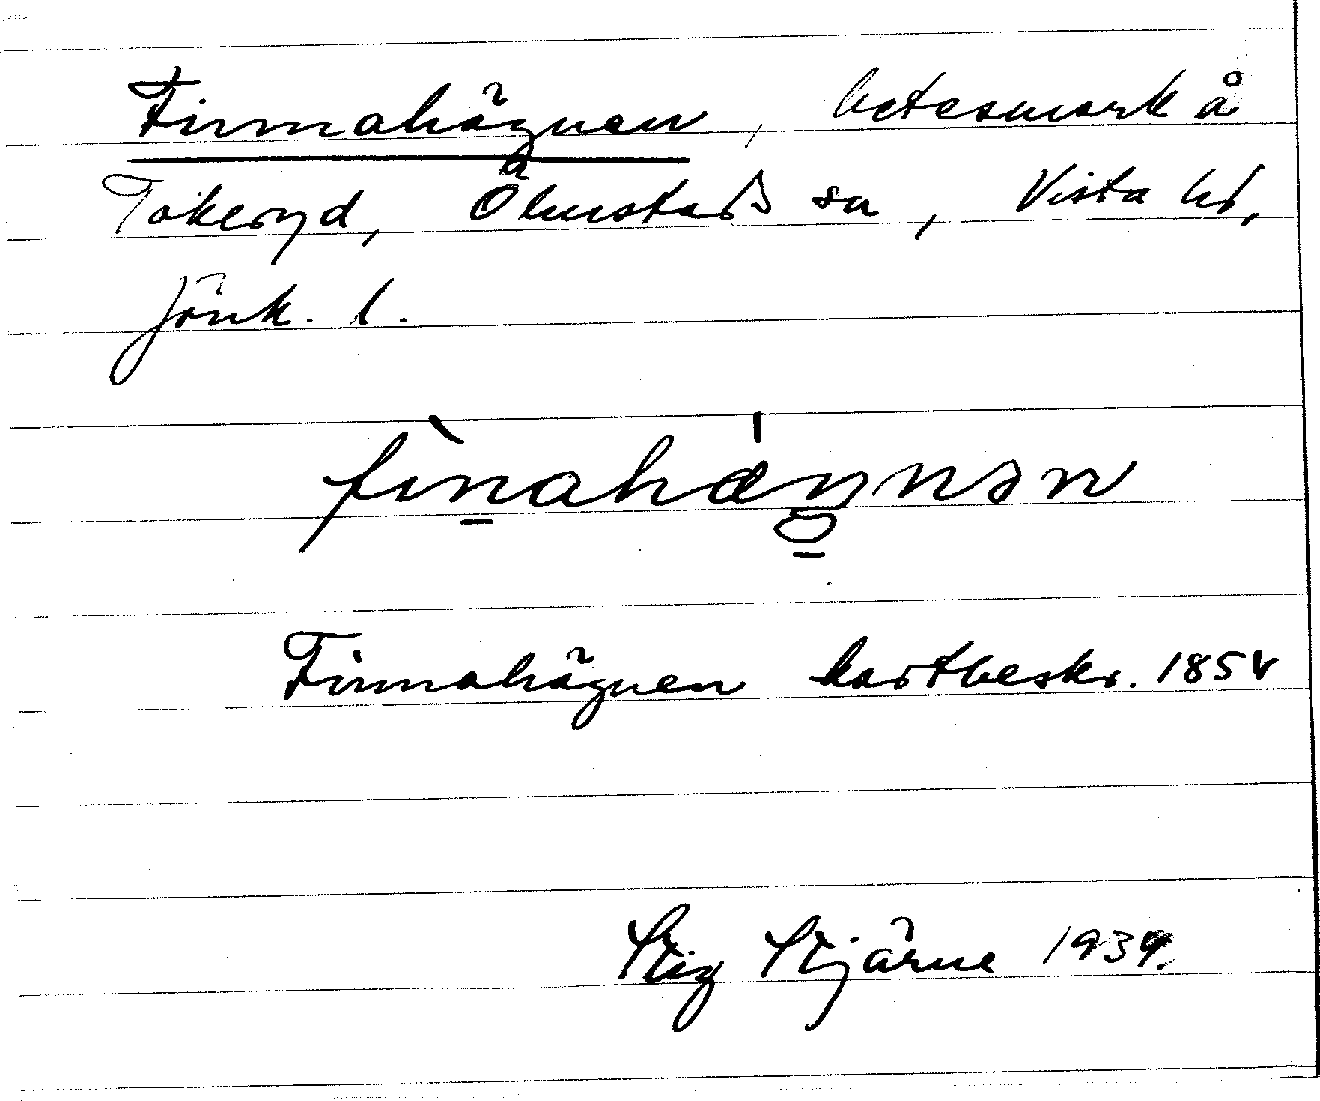 Finnahägnen, betesmark å
Tokeryd, Ölmstads sn, Vista hd,
Jönk. l.
fìn̠ahæ̍ŋnən
Finnahägnen kartbeskr. 1854
Stig Stjärne 1934.